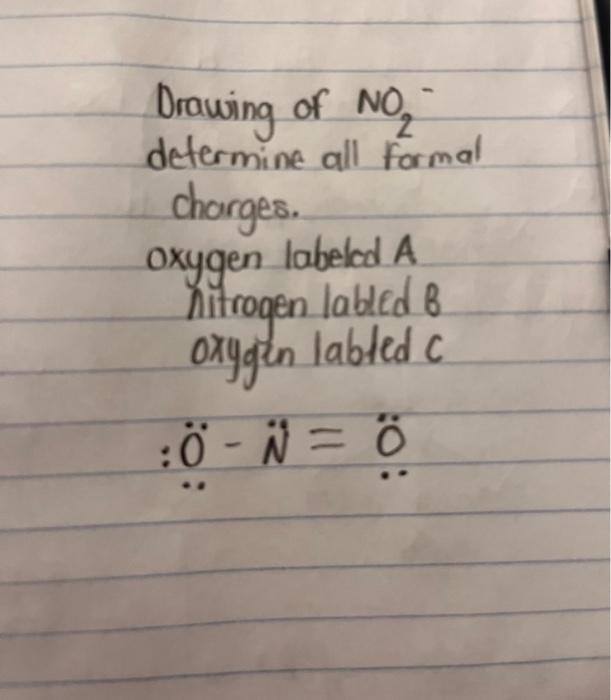 Drawing of NO₂⁻
determine all formal
charges.
oxygen labeled A
nitrogen labled B
oxygen labled C
:Ö̤ - N̈ = Ö̤